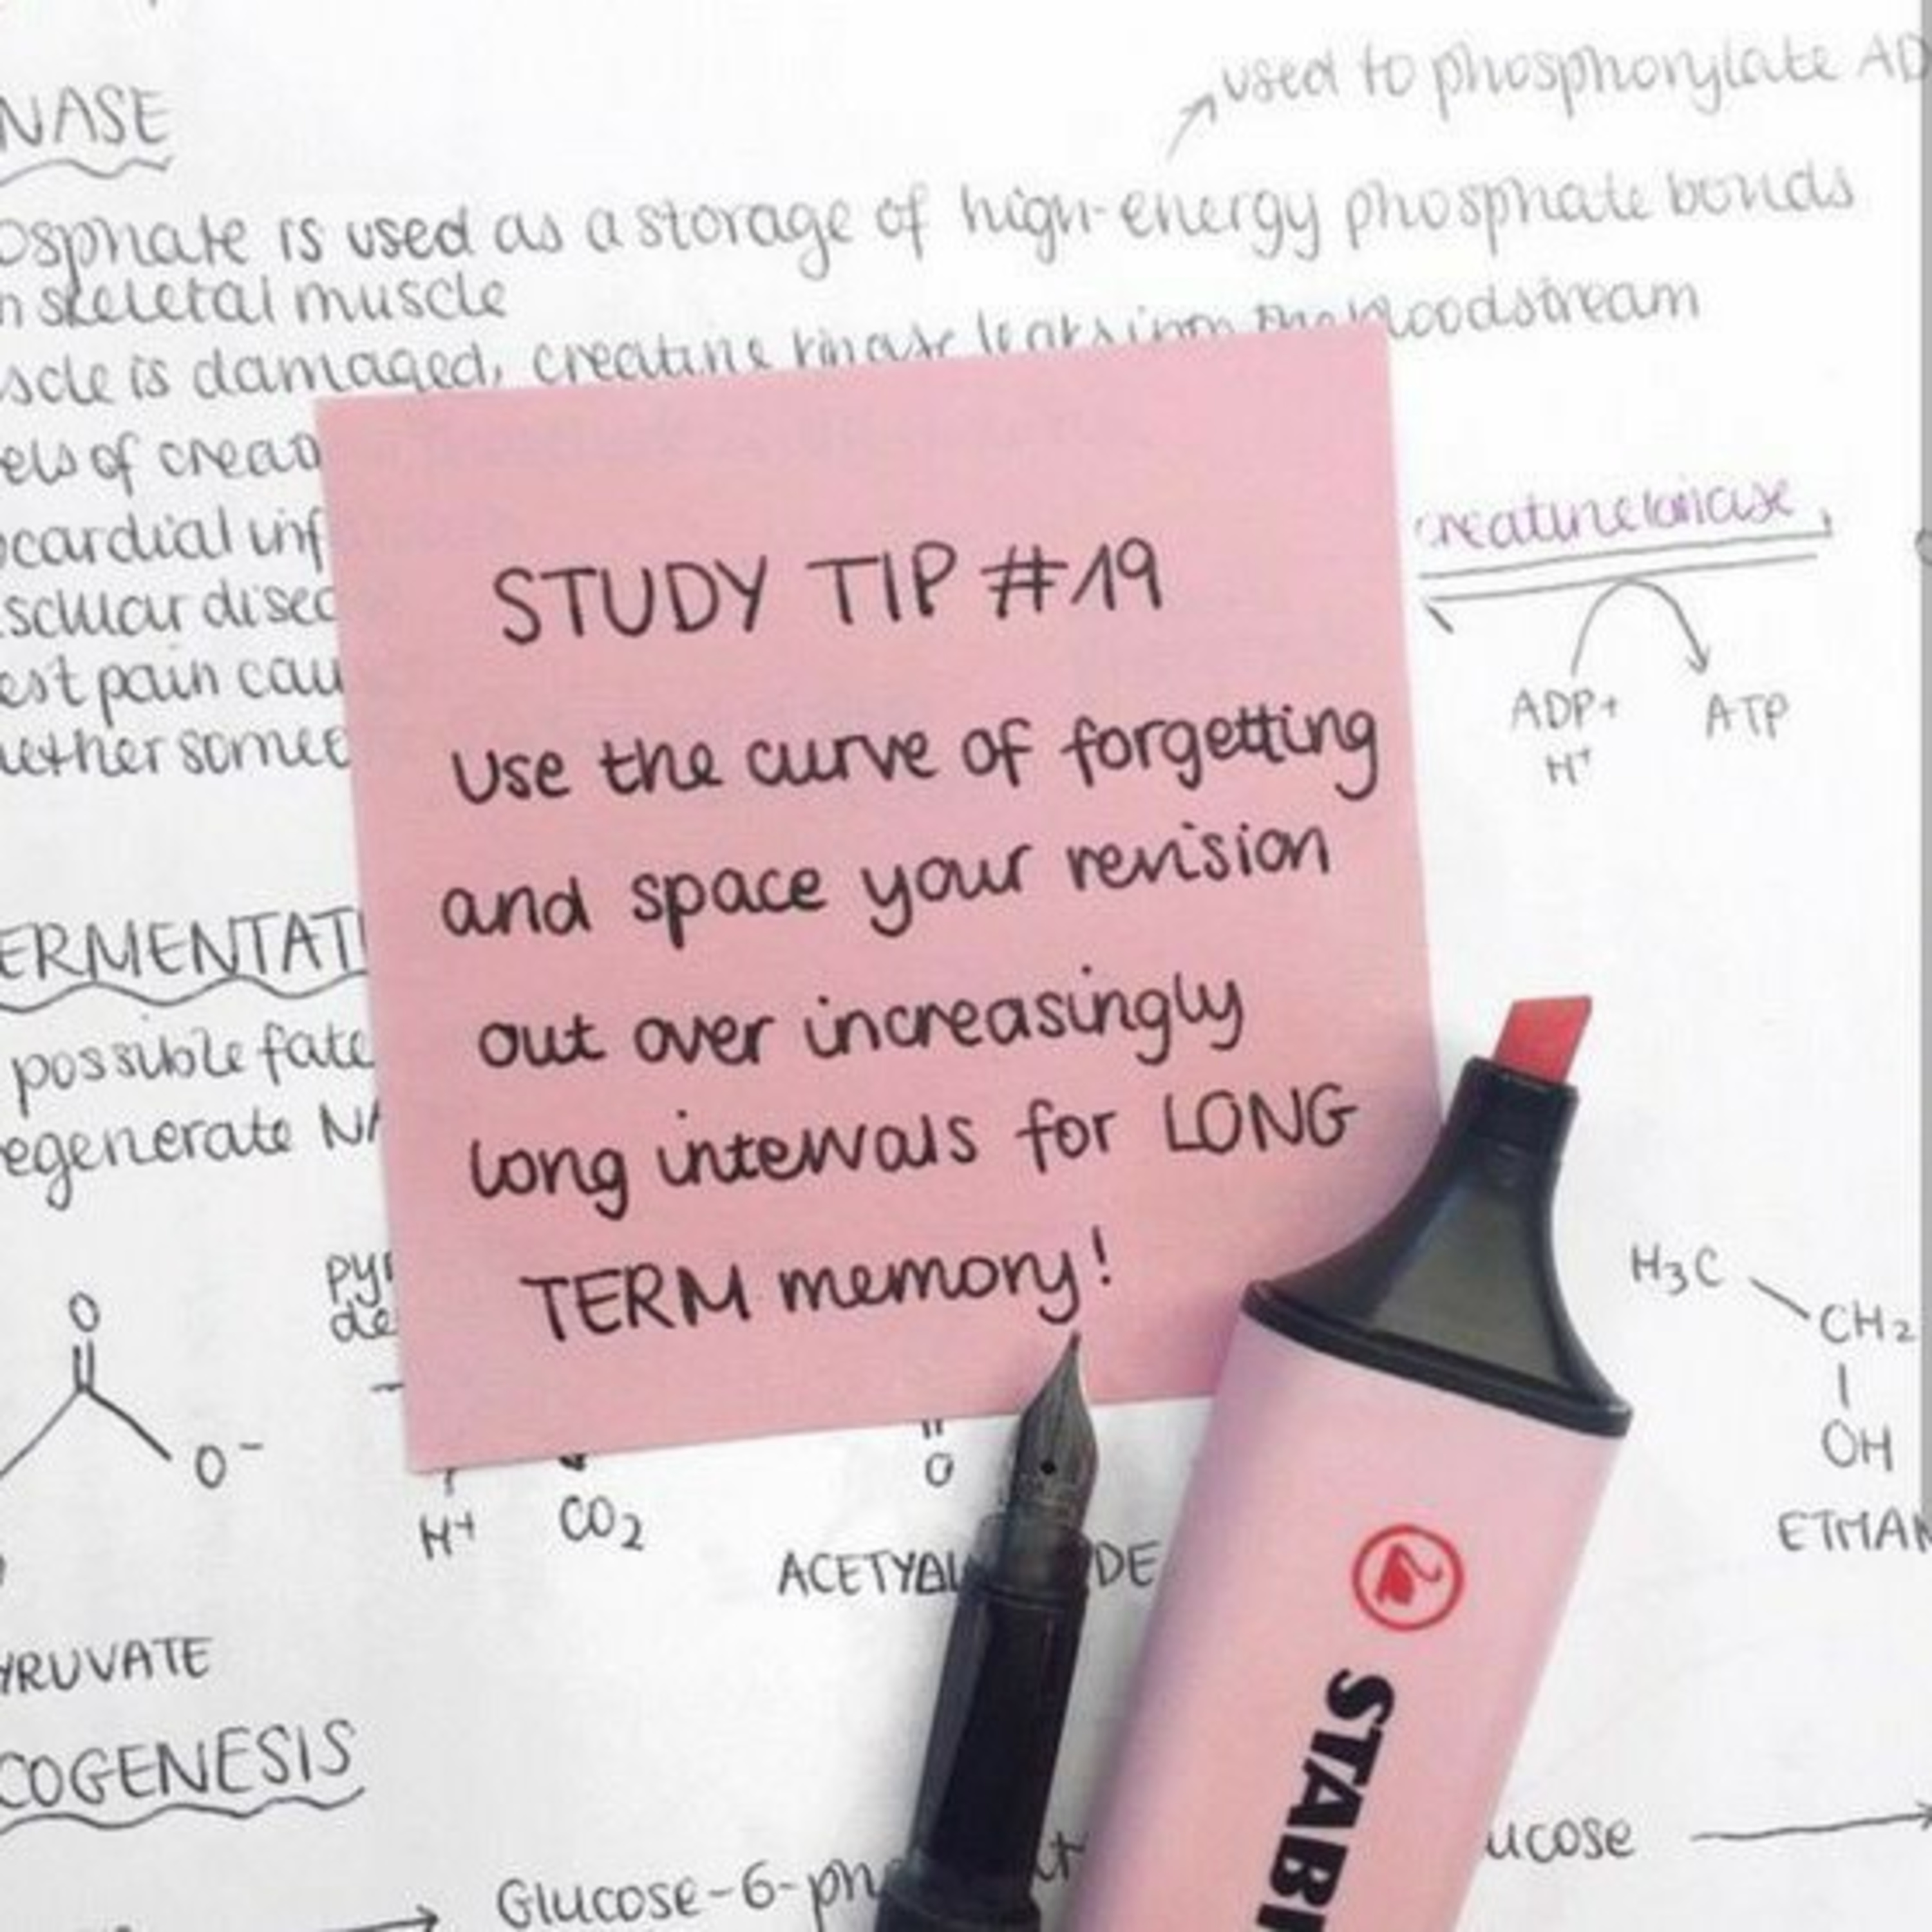 NASE
used to phosphorylate AD
osphate is used as a storage of high-energy phosphate bonds
n skeletal muscle
scle is damaged, creatine kinase leaks into the bloodstream
els of creat
STUDY TIP #19
creatine kinase
ocardial inf
scular disea
est pain cau
ether someo
ADP+
H+
ATP
Use the curve of forgetting
and space your revision
out over increasingly
long intervals for LONG
TERM memory!
ERMENTATI
possible fate
egenerate NA
pyr
de
O
O-
H+
CO2
O
ACETYAL DE
H3C
CH2
OH
ETHAN
YRUVATE
COGENESIS
STABI
Glucose-6-ph
ucose